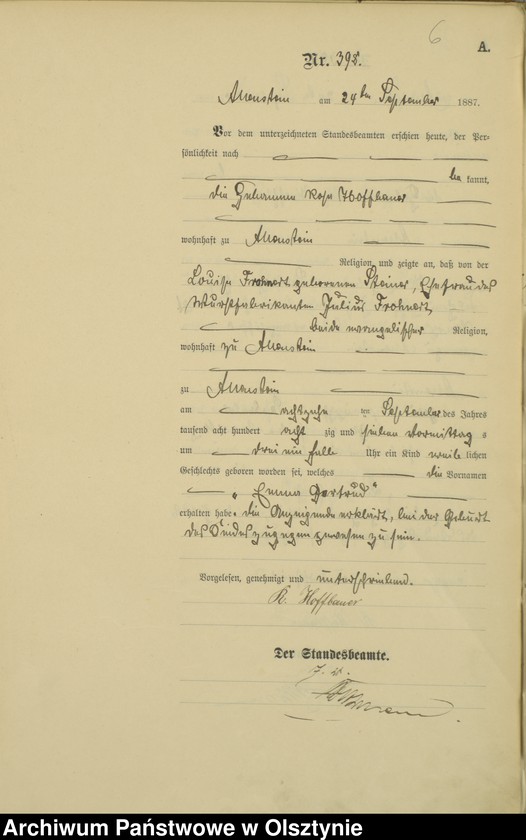 6
A.
Nr. 398.
Allenstein am 24ten September 1887.
Vor dem unterzeichneten Standesbeamten erschien heute, der Per-
sönlichkeit nach
be kannt,
die Hebamme Rosa Hoffbauer
wohnhaft zu Allenstein
Religion, und zeigte an, daß von der
Louise Frohnert geborenen Steiner, Ehefrau des
Wurstfabrikanten Julius Frohnert,
beide evangelischer Religion,
wohnhaft zu Allenstein
zu Allenstein
am achtzehn ten September des Jahres
tausend acht hundert acht zig und sieben Vormittag s
um drei ein halb Uhr ein Kind weib lichen
Geschlechts geboren worden sei, welches die Vornamen
„Emma Gertrud“
erhalten habe. die Anzeigende erklärt, bei der Geburt
des Kindes zugegen gewesen zu sein.
Vorgelesen, genehmigt und unterschrieben.
R. Hoffbauer
Der Standesbeamte.
Archiwum Państwowe w Olsztynie